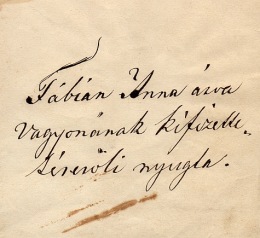 Fábián Anna árva
vagyonának kifizette-
téséröli nyugta.